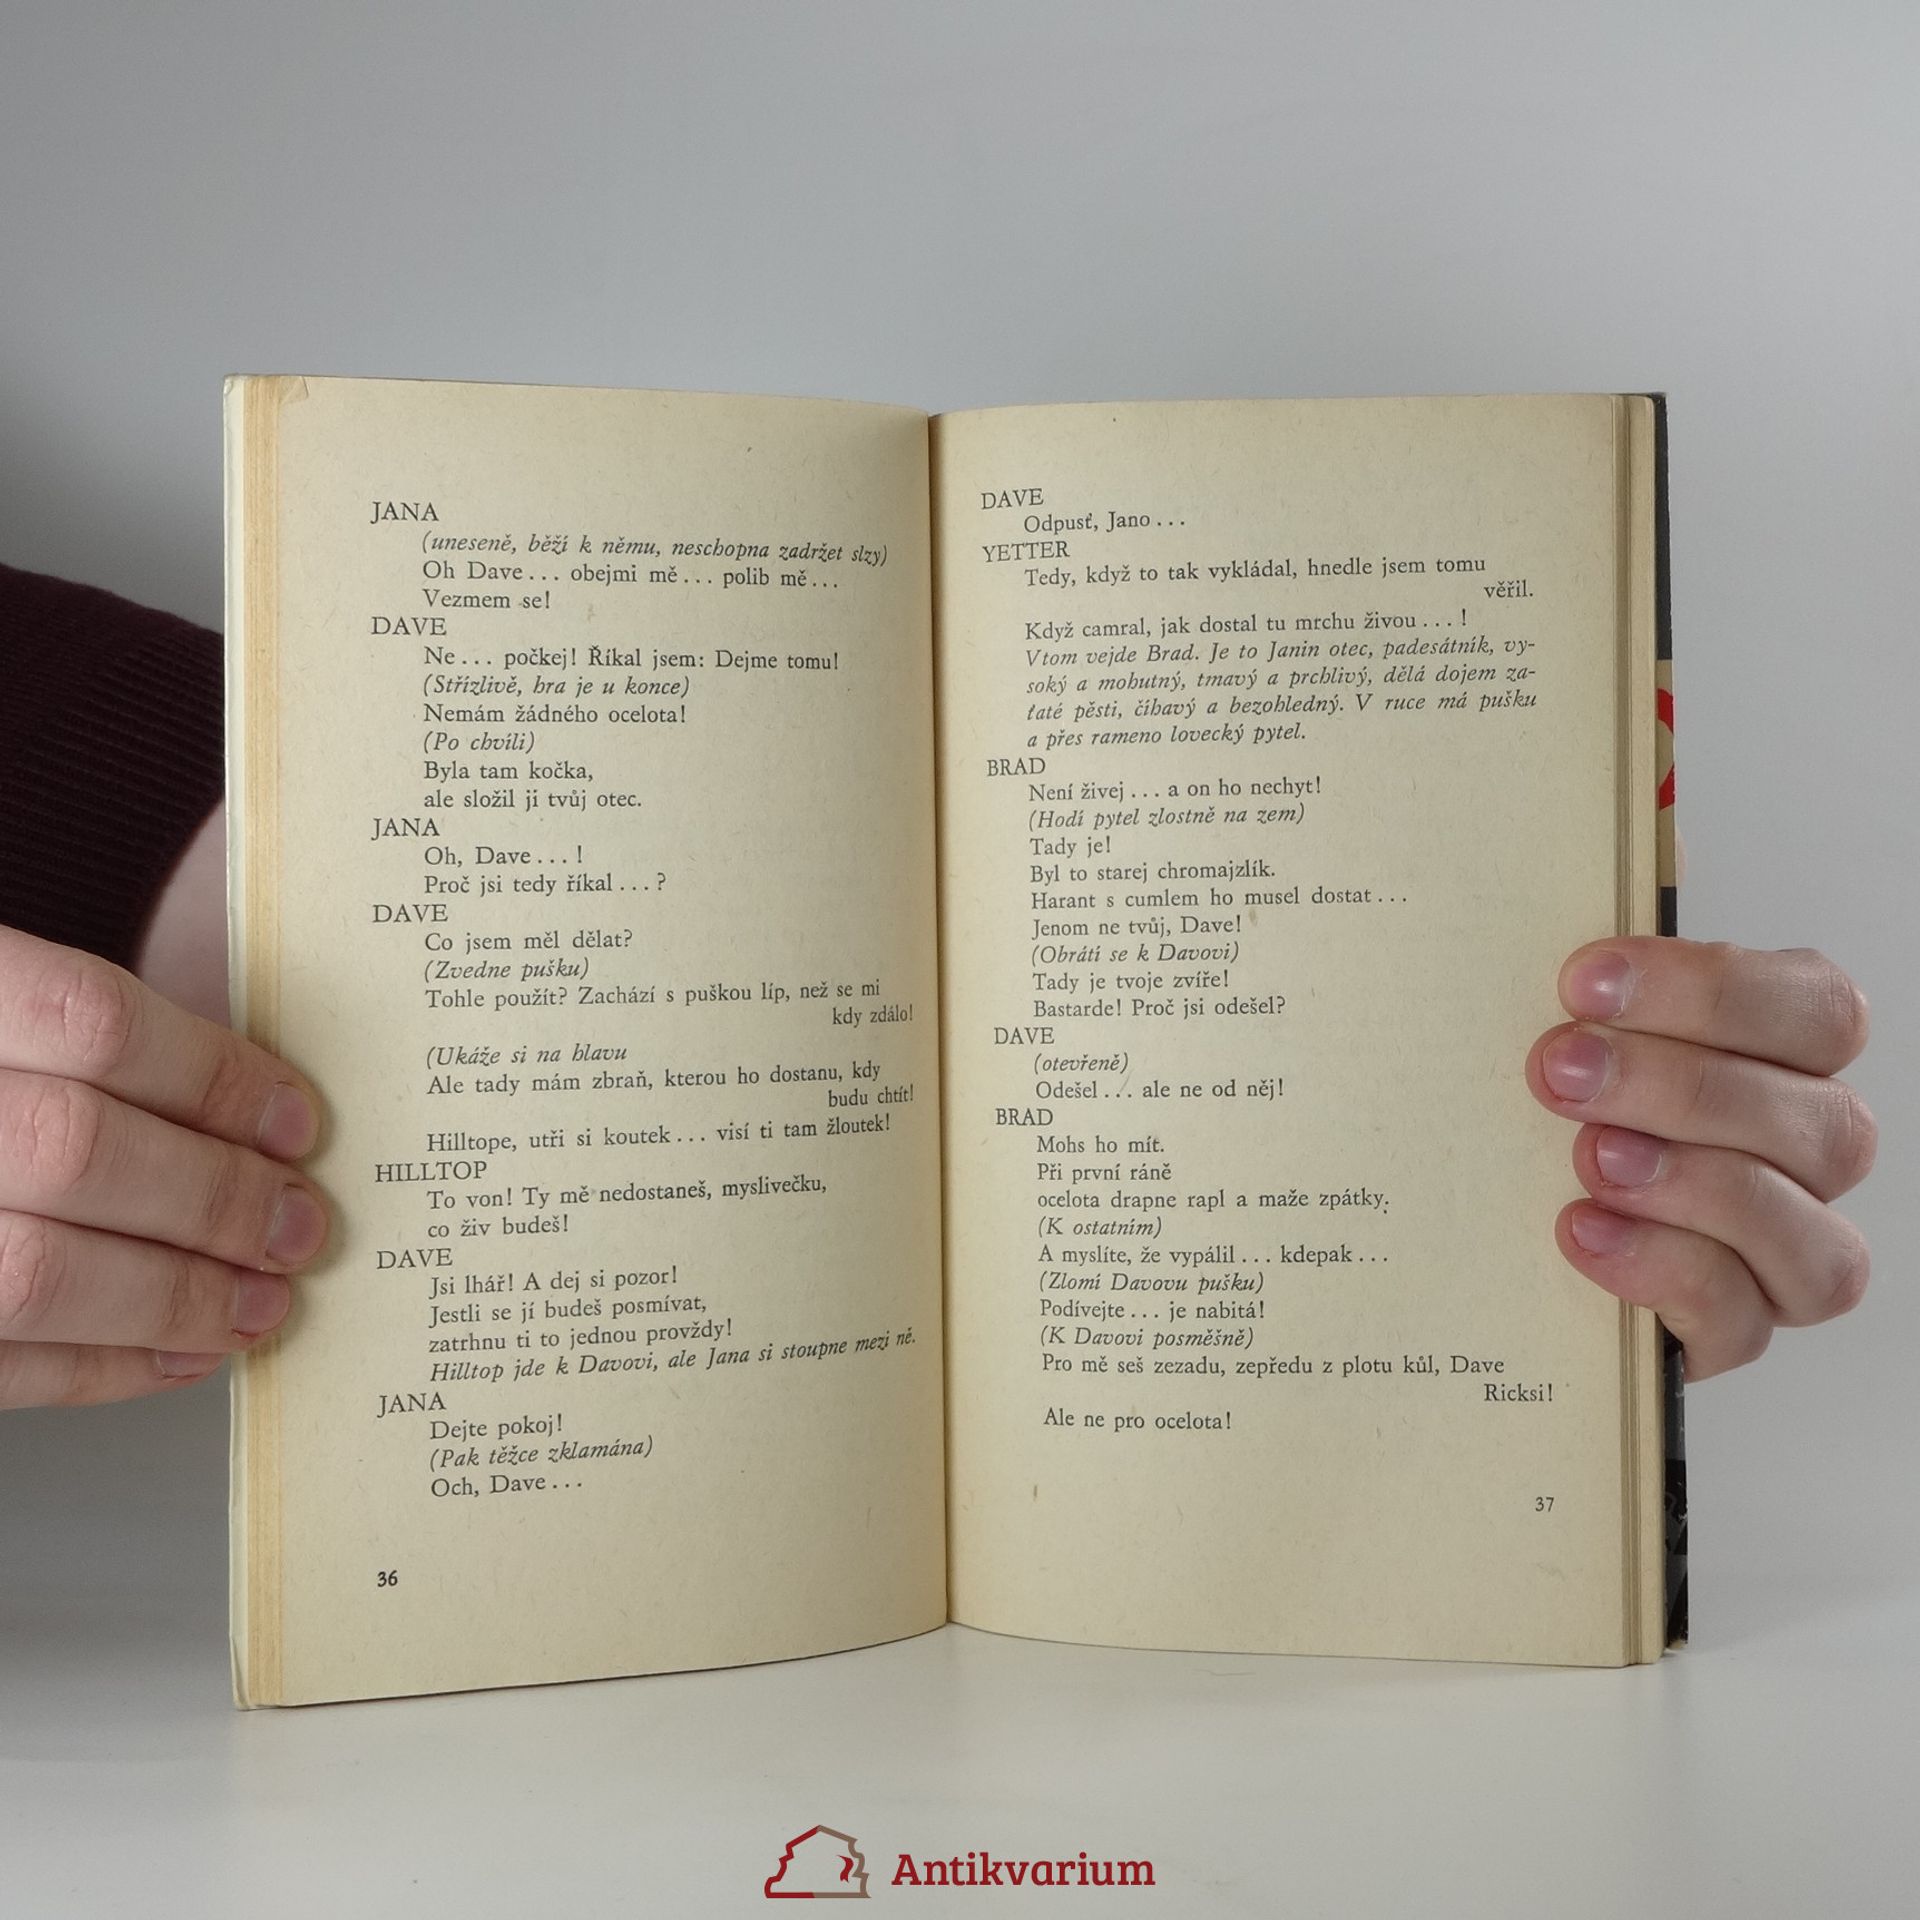 JANA
(uneseně, běží k němu, neschopna zadržet slzy)
Oh Dave... obejmi mě... polib mě...
Vezmem se!
DAVE
Ne... počkej! Říkal jsem: Dejme tomu!
(Střízlivě, hra je u konce)
Nemám žádného ocelota!
(Po chvíli)
Byla tam kočka,
ale složil ji tvůj otec.
JANA
Oh, Dave...!
Proč jsi tedy říkal...?
DAVE
Co jsem měl dělat?
(Zvedne pušku)
Tohle použít? Zachází s puškou líp, než se mi
kdy zdálo!
(Ukáže si na hlavu
Ale tady mám zbraň, kterou ho dostanu, kdy
budu chtít!
Hilltope, utři si koutek... visí ti tam žloutek!
HILLTOP
To von! Ty mě nedostaneš, myslivečku,
co živ budeš!
DAVE
Jsi lhář! A dej si pozor!
Jestli se jí budeš posmívat,
zatrhnu ti to jednou provždy!
Hilltop jde k Davovi, ale Jana si stoupne mezi ně.
JANA
Dejte pokoj!
(Pak těžce zklamána)
Och, Dave...
36
DAVE
Odpusť, Jano...
YETTER
Tedy, když to tak vykládal, hnedle jsem tomu
věřil.
Když camral, jak dostal tu mrchu živou...!
Vtom vejde Brad. Je to Janin otec, padesátník, vy-
soký a mohutný, tmavý a prchlivý, dělá dojem za-
ťaté pěsti, číhavý a bezohledný. V ruce má pušku
a přes rameno lovecký pytel.
BRAD
Není živej... a on ho nechyt!
(Hodí pytel zlostně na zem)
Tady je!
Byl to starej chromajzlík.
Harant s cumlem ho musel dostat...
Jenom ne tvůj, Dave!
(Obrátí se k Davovi)
Tady je tvoje zvíře!
Bastarde! Proč jsi odešel?
DAVE
(otevřeně)
Odešel... ale ne od něj!
BRAD
Mohs ho mít.
Při první ráně
ocelota drapne rapl a maže zpátky.
(K ostatním)
A myslíte, že vypálil... kdepak...
(Zlomí Davovu pušku)
Podívejte... je nabitá!
(K Davovi posměšně)
Pro mě seš zezadu, zepředu z plotu kůl, Dave
Ricksi!
Ale ne pro ocelota!
37
Antikvarium